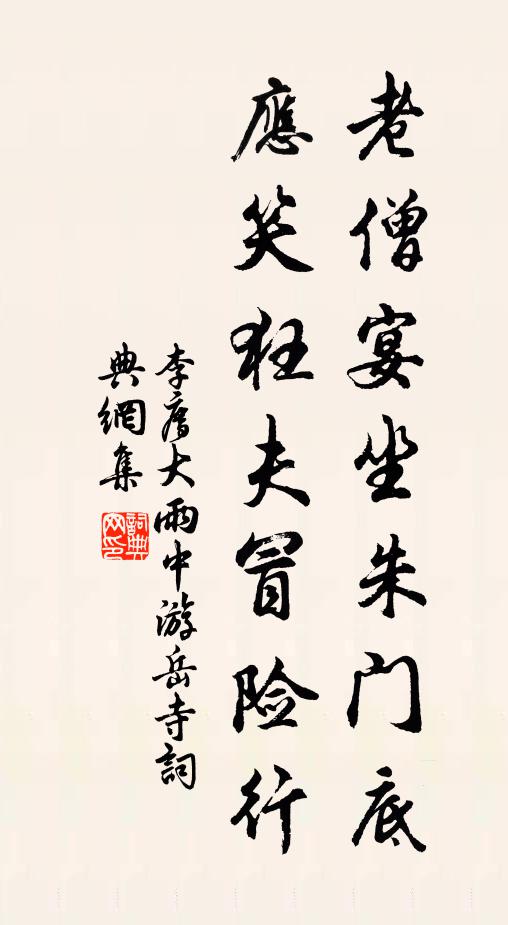 老僧宴坐朱門底
應笑狂夫冒险行
李廌大雨中游岳寺詞
典網集
詞典網印